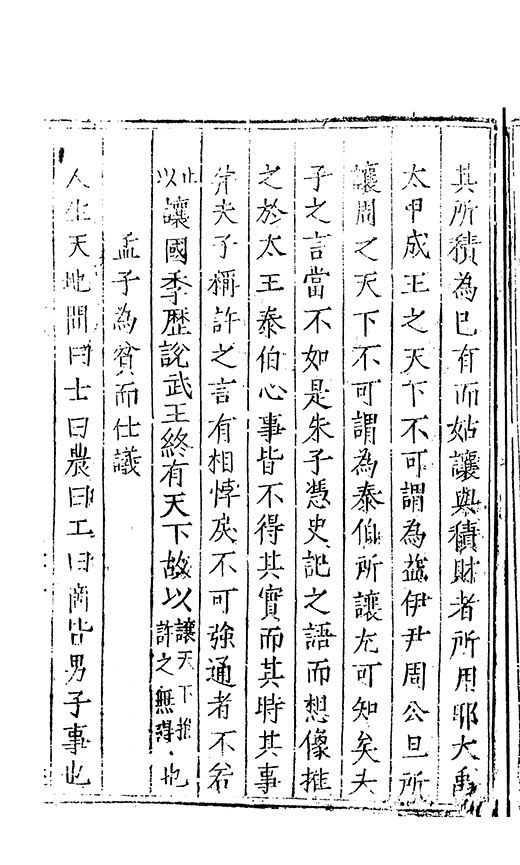 其所積為已有而姑讓與積財者所用耶大禹
太甲成王之天下不可謂為益伊尹周公旦所
讓周之天下不可謂為泰伯所讓尤可知矣夫
子之言當不如是朱子憑史記之語而想像推
之於太王泰伯心事皆不得其實而其時其事
并夫子稱許之言有相悖戾不可強通者不若
止以讓國季歷說武王終有天下故以讓天下推許之無礙也
孟子為貧而仕議
人生天地間曰士曰農曰工曰商皆男子事也